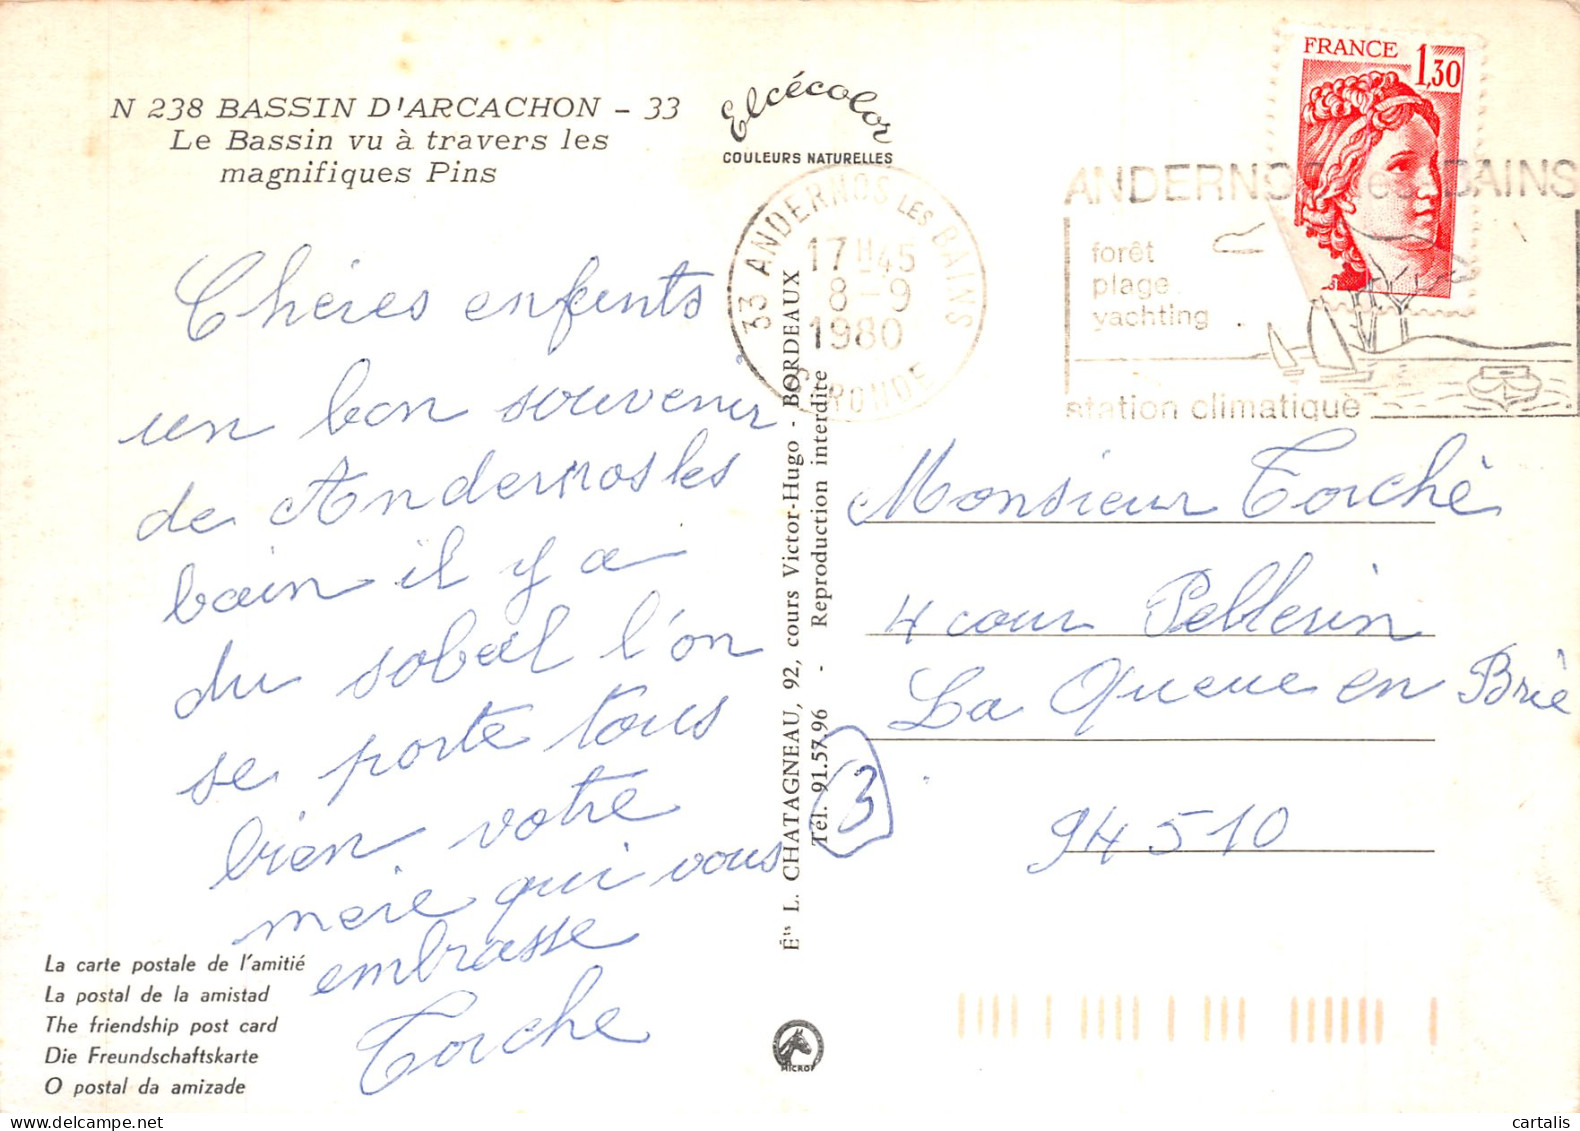 N 238 BASSIN D'ARCACHON - 33
Le Bassin vu à travers les
magnifiques Pins
Elcécolor
COULEURS NATURELLES
FRANCE 1,30
33 ANDERNOS LES BAINS
17H45
8-9
1980
GIRONDE
ANDERNOS les BAINS
forêt
plage
yachting
station climatique
Chères enfents
un bon souvenir
de Andernos les
bain il y a
du soleil l'on
se porte tous
bien votre
mere qui vous
embrasse
Torche
Monsieur Torchè
4 cour Pellerin
La Queue en Brie
94510
3
Éts L. CHATAGNEAU, 92, cours Victor-Hugo - BORDEAUX
Tél. 91.57.96 - Reproduction interdite
La carte postale de l'amitié
La postal de la amistad
The friendship post card
Die Freundschaftskarte
O postal da amizade
MICRO
cartalis